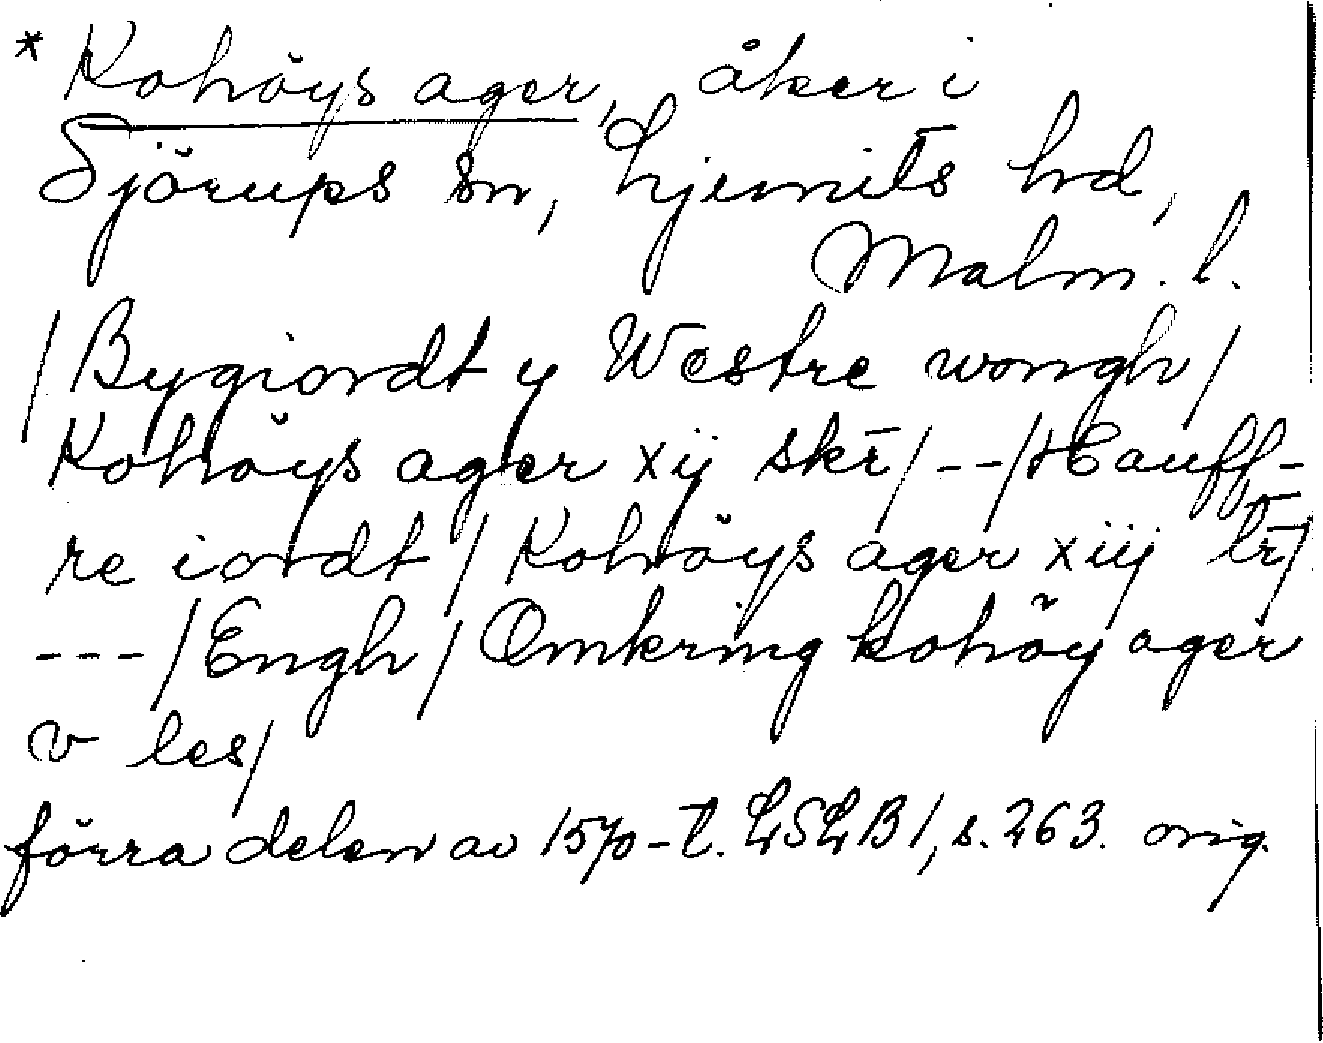 * Kohöys ager, åker i
Sjörups sn, Ljunits hd,
Malm. l.
/ Bygiordt y Westre wongh /
Kohöys ager xij skr̄ / -- / Hauff-
re iordt / Kohöys ager xiij lr̄ /
--- / Engh / Omkring kohöy ager
v les /
förra delen av 1570-t. LSLB 1, s. 263. orig.